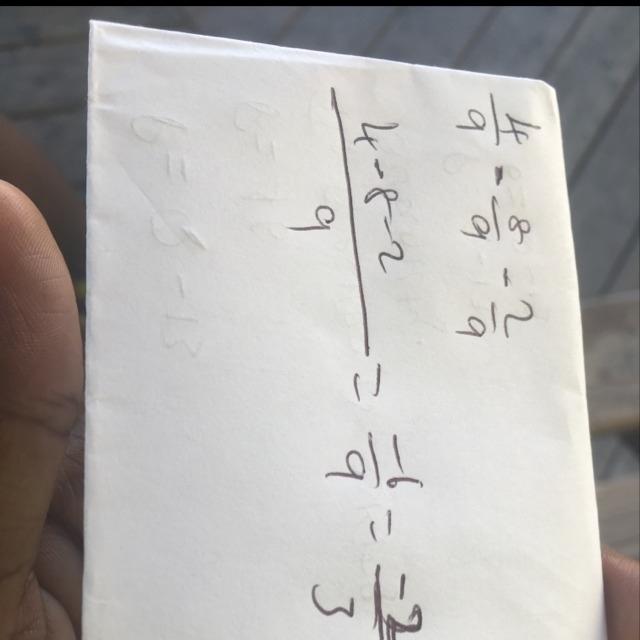 4/9 - 8/9 - 2/9
(4 - 8 - 2)/9 = -6/9 = -2/3